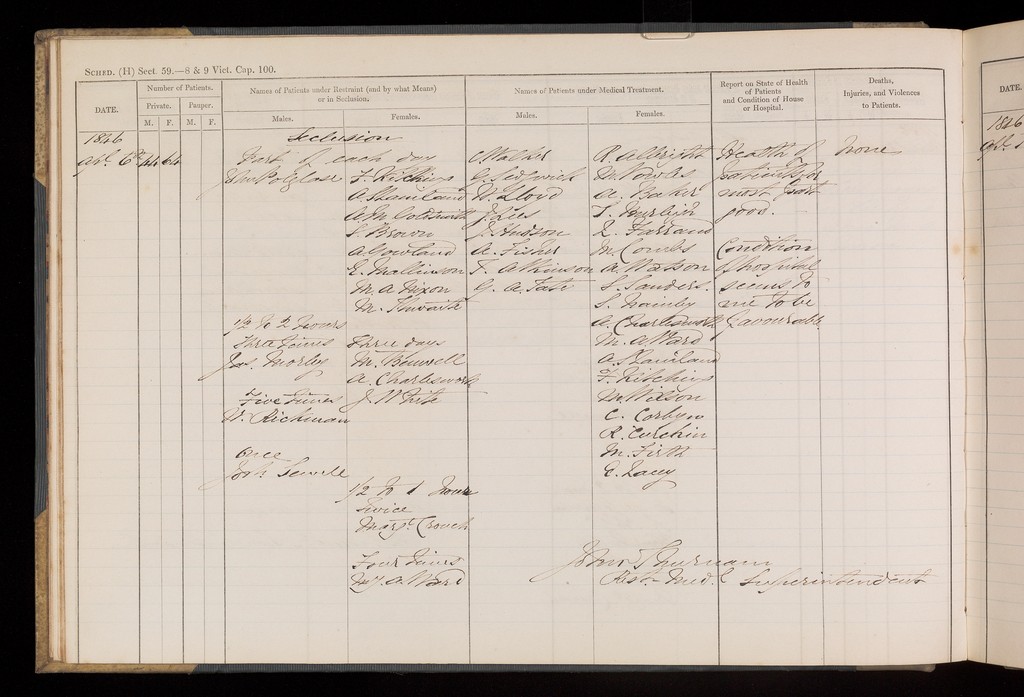 SCHED. (H) Sect. 59.—8 & 9 Vict. Cap. 100.
DATE.
Number of Patients.
Private.
Pauper.
M. F. M. F.
Names of Patients under Restraint (and by what Means)
or in Seclusion.
Males.
Females.
Names of Patients under Medical Treatment.
Males.
Females.
Report on State of Health
of Patients
and Condition of House
or Hospital.
Deaths,
Injuries, and Violences
to Patients.
1846
Apl. 6th 44 64
Seclusion
Part of each day
Jno. Polglase
1/2 to 2 hours
Three times
Jas. Morley
Five times
W. Richman
Once
Josh. Sewell
F. Kitching
A. Staniland
A. M. Coldsmith
S. Brown
A. Gowland
E. Mallinson
M. A. Nixon
M. Thwaite
Three days
M. Benwell
A. Charlesworth
J. White
1/2 to 1 hour
Twice
Margt. Crouch
Four times
My. A. Ward
C. Walker
G. Sedgwick
W. Lloyd
J. Iles
J. Hudson
A. Fisher
T. Atkinson
G. A. Tate
R. Albright
M. Fowles
A. Baker
T. Burleigh
L. Farrand
M. Combs
A. Watson
S. Sanders.
S. Naimby
A. Charlesworth
M. A. Ward
A. Staniland
F. Kitching
M. Wilson
C. Corbyn
R. Cutchin
M. Firth
E. Lacey
Health of
patients for
most part
good.
Condition
of hospital
seems to
me to be
favourable.
None
John Thurnam
Rest. Medl. Superintendent
DATE.
1846